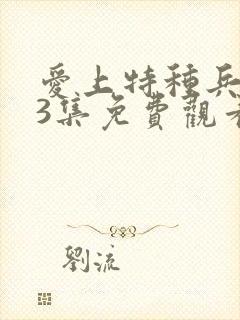 愛上特種兵
3集免費觀看
劉流